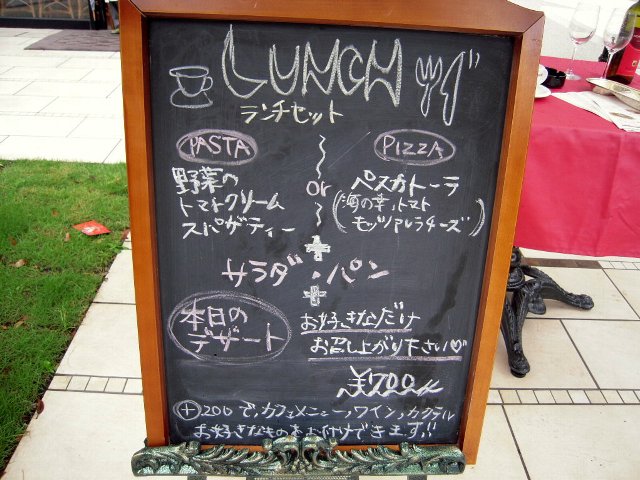 LUNCH
ランチセット
PASTA
野菜の
トマトクリーム
スパゲティー
or
PIZZA
ペスカトーラ
(海の幸、トマト
モッツアレラチーズ)
+
サラダ・パン
+
本日の
デザート
お好きなだけ
お召し上がり下さい♡
+200で、カフェメニュー、ワイン、カクテル
お好きなものをお付けできます